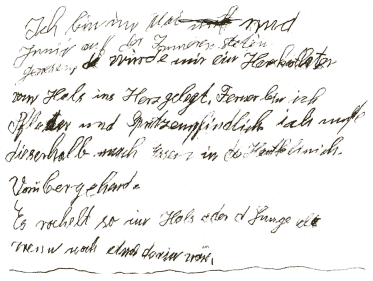 Ich bin im Hals und
auf der Inneren Station
wurde mir ein Herzkatheter
vom Hals ins Herz gelegt, Ferner bin ich
Pflaster und Spritzempfindlich ich muß
dieserhalb nach in die Hautklinich.
Vorübergehend.
Es rochelt so im Hals oder d Lunge als
wenn noch etwas darin wär.